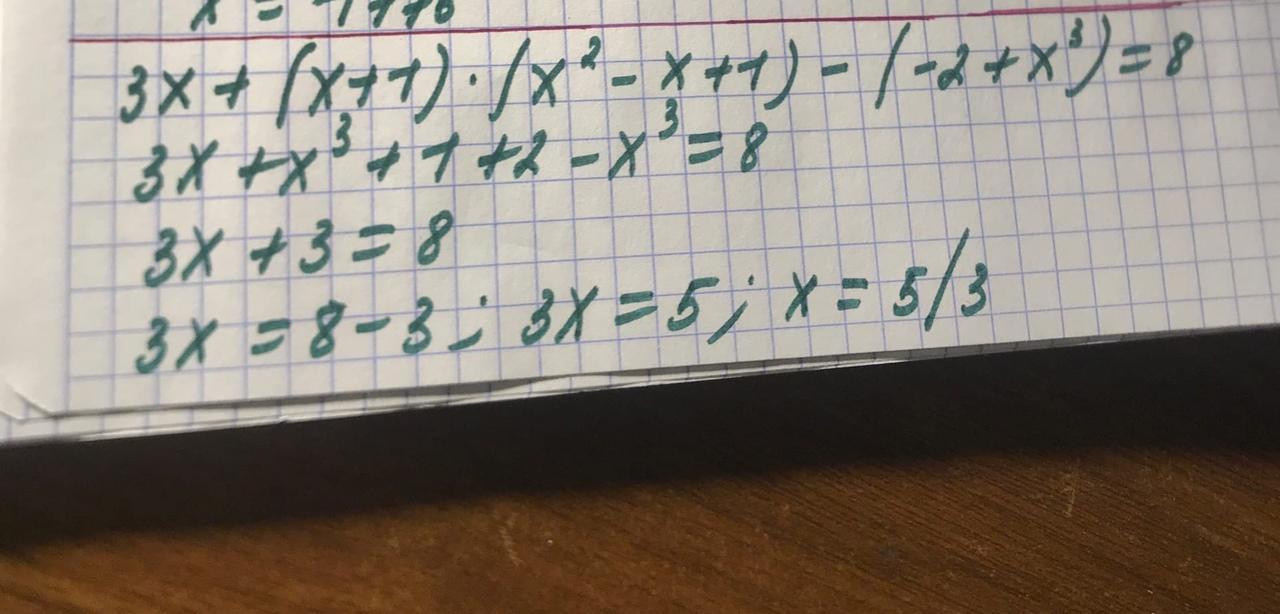 3x + (x+1)·(x² - x+1) - (-2+x³) = 8
3x + x³ + 1 + 2 - x³ = 8
3x + 3 = 8
3x = 8 - 3; 3x = 5; x = 5/3